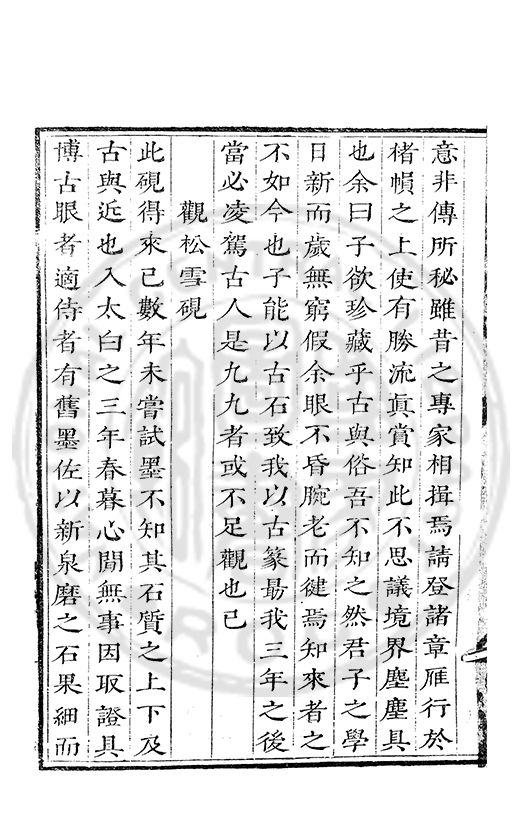 意非傳所秘雖昔之專家相揖焉請登諸章雁行於
楮幀之上使有勝流真賞知此不思議境界塵塵具
也余曰子欲珍藏乎古與俗吾不知之然君子之學
日新而歲無窮假余眼不昏腕老而健焉知來者之
不如今也子能以古石致我以古篆勗我三年之後
當必凌駕古人是九九者或不足觀也已
觀松雪硯
此硯得來已數年未嘗試墨不知其石質之上下及
古與近也入太白之三年春暮心閒無事因取證具
博古眼者適侍者有舊墨佐以新泉磨之石果細而